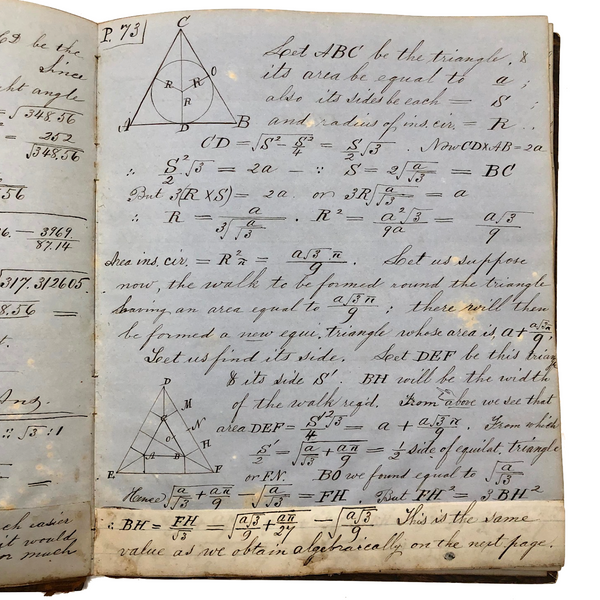 P. 73
C
R R O
R
A D B
Let ABC be the triangle, &
its area be equal to a ;
also its sides be each = S ;
and radius of ins. cir. = R ..
CD = √S² - S²/4 = S/2 √3 . Now CD×AB = 2a
∴ S²/2 √3 = 2a - ∵ S = 2√a/√3 = BC
But 3(R × S) = 2a or 3R√a/√3 = a
∴ R = a/3√a/√3 . R² = a²√3/9a = a√3/9
Area ins. cir. = R²π = a√3 π/9 . Let us suppose
now, the walk to be formed round the triangle
having an area equal to a√3 π/9 ; there will then
be formed a new equi. triangle whose area is a + a√3π/9
Let us find its side. Let DEF be this triang
& its side S'. BH will be the width
of the walk reqd. From above we see that
area DEF = S'²√3/4 = a + a√3π/9 . From which
S'/2 = √a/√3 + aπ/9 = 1/2 side of equilat. triangle
or FN. BO we found equal to √a/√3
Hence √a/√3 + aπ/9 - √a/√3 = FH . But FH² = 3BH²
∴ BH = FH/√3 = √a√3/9 + aπ/27 - √a√3/9 This is the same
value as we obtain algebraically on the next page.
D
M
C
N
O
H
A B
E F
be the
Since
ght angle
= √348.56
= 252/√348.56
.56
- 3969/87.14
317.312605
8.56 =
Ans.
:: √3 : 1
ch easier
it would
or much